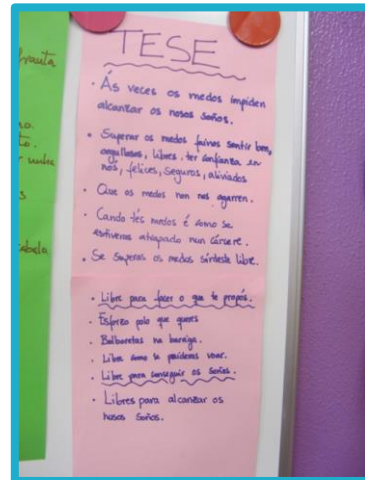 TESE
· Ás veces os medos impiden
alcanzar os nosos soños.
· Superar os medos fainos sentir ben,
orgullosos, libres, ter confianza en
nós, felices, seguros, aliviados
· Que os medos non nos agarren.
· Cando tés medos é como se
estiveras atrapado nun cárcere.
· Se superas os medos sínteste libre.
· Libre para facer o que te propós.
· Esforzo polo que queres
· Bolboretas na barriga.
· Libre como se puideras voar.
· Libre para conseguir os soños.
· Libres para alcanzar os
nosos soños.
frauta